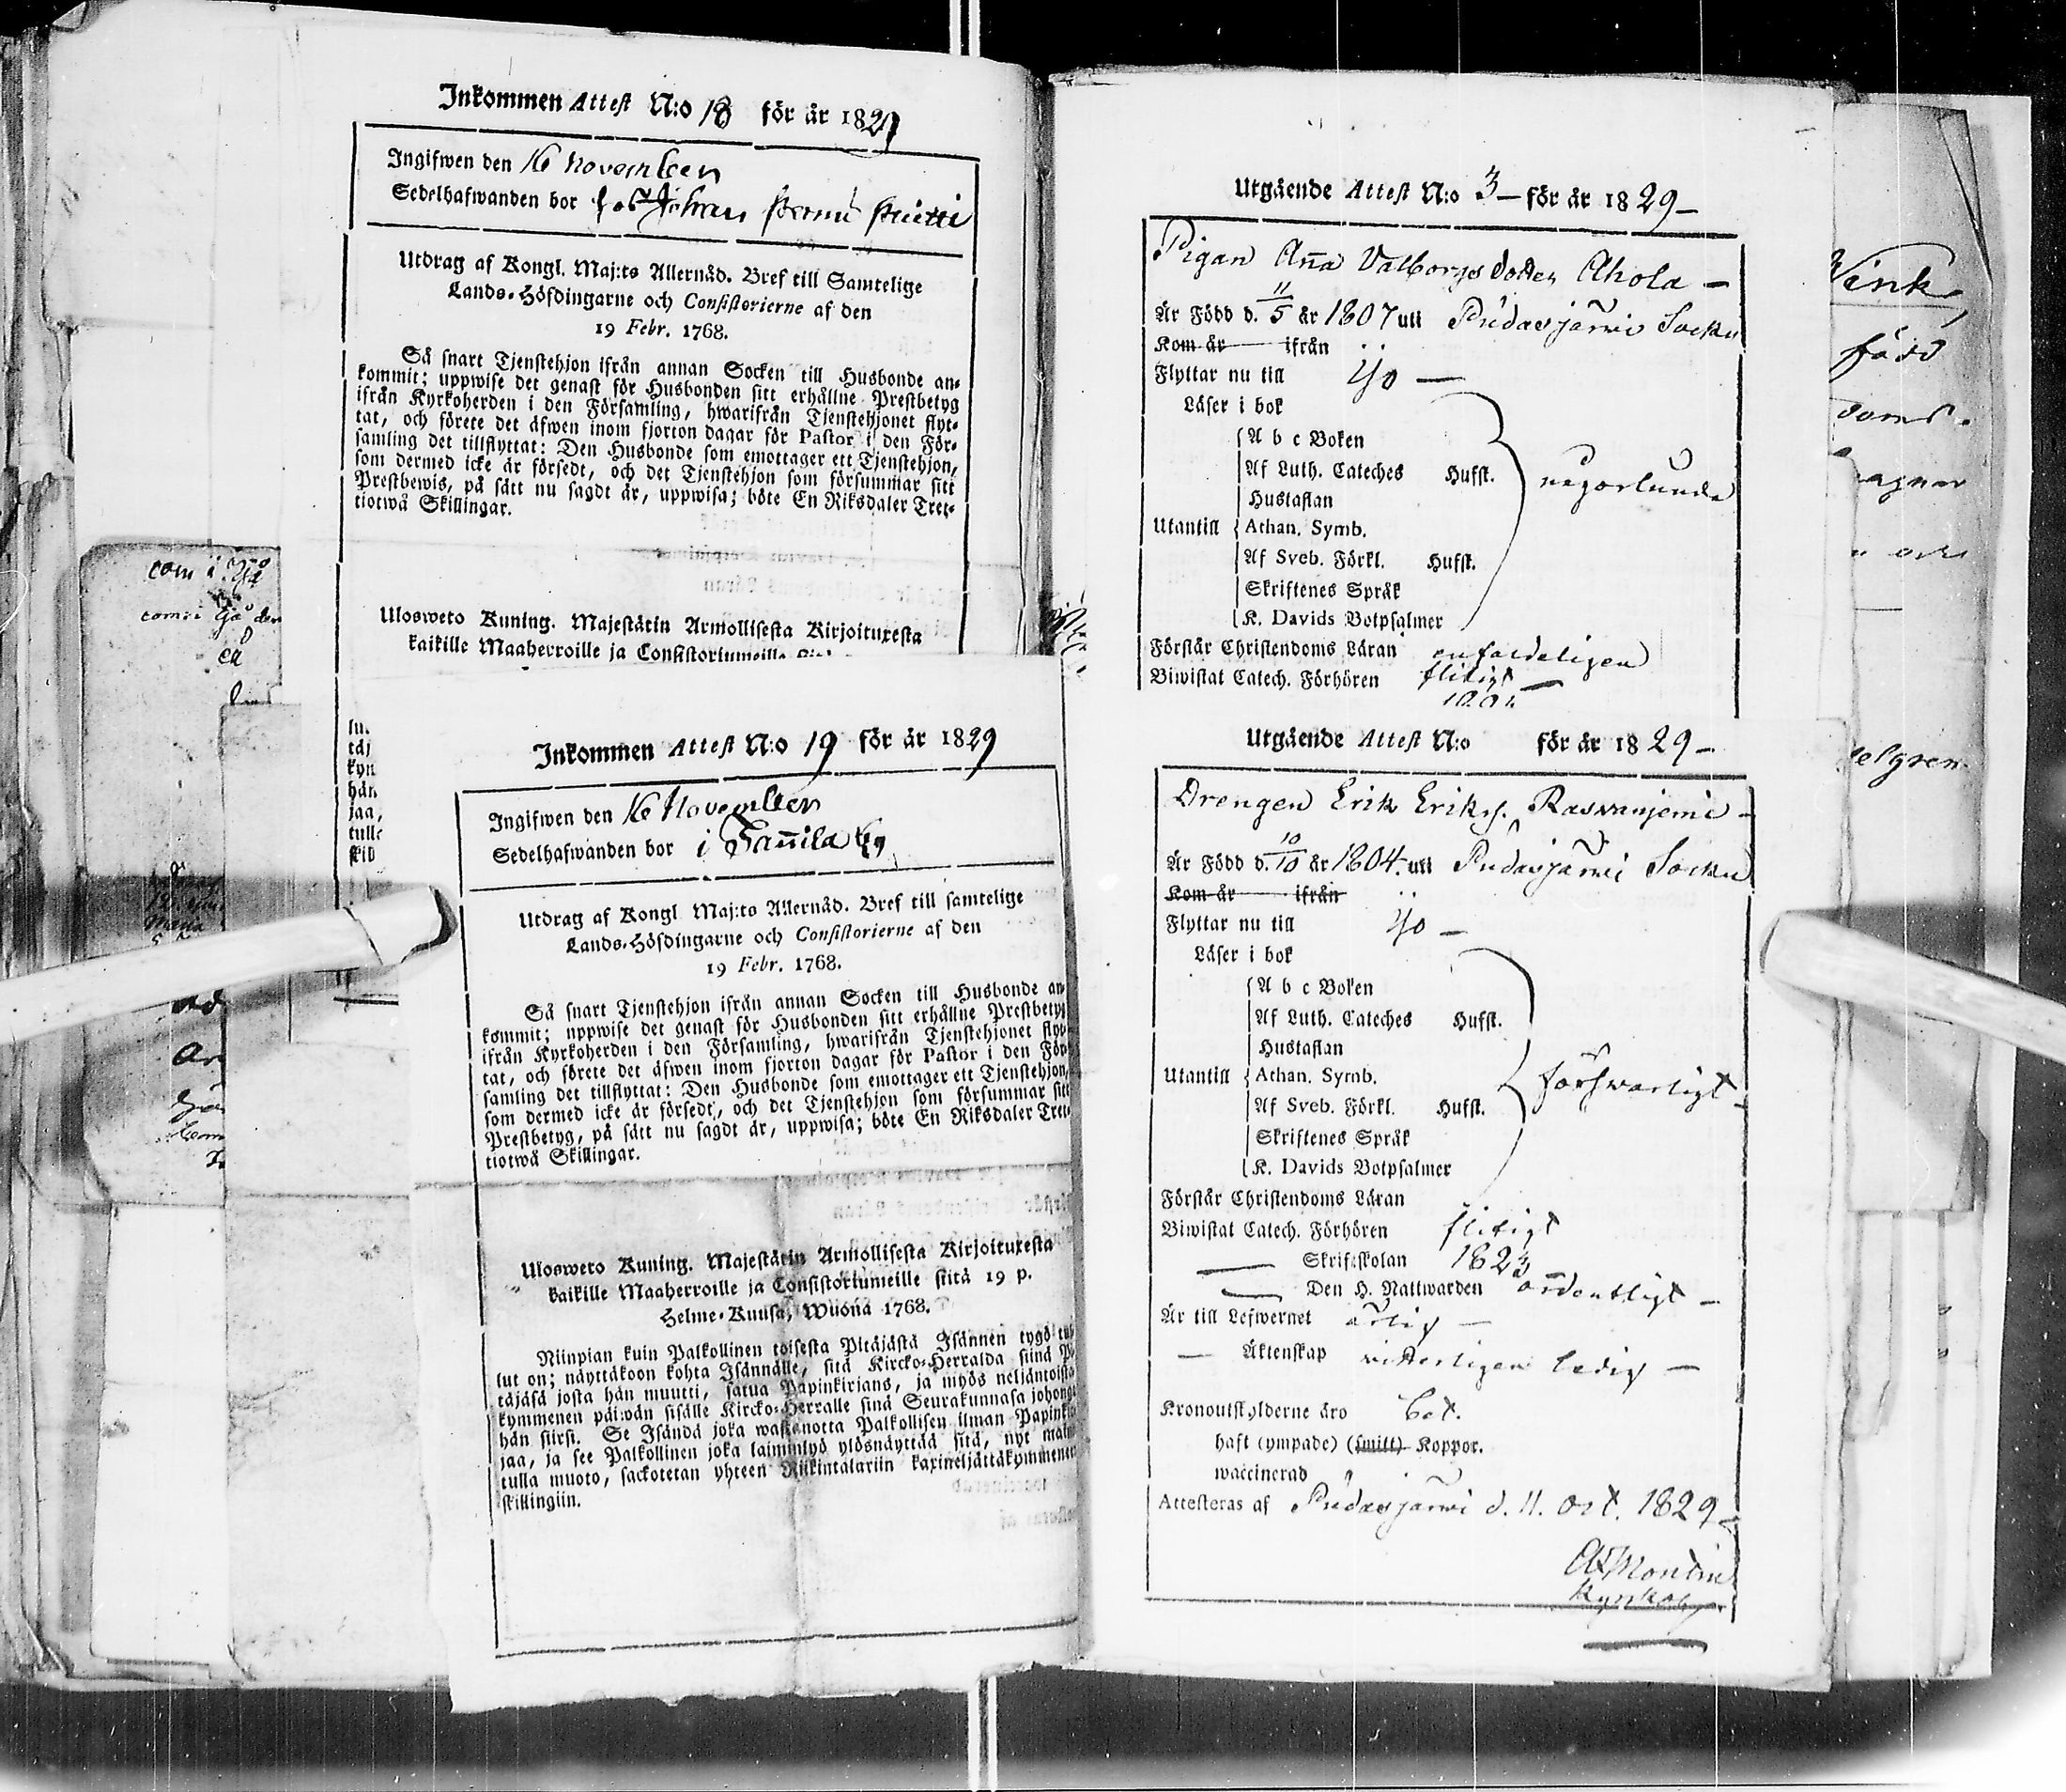 Inkommen Attest N:o 18 för år 1829
Ingifwen den 16 November
Sedelhafwanden bor hos Johan
Utdrag af Kongl. Maj:ts Allernåd. Bref till Samtelige
Lands-Höfdingarne och Consistorierne af den
19 Febr. 1768.
Så snart Tjenstehjon ifrån annan Socken till Husbonde an-
kommit; uppwise det genast för Husbonden sitt erhållne Prestbetyg
ifrån Kyrkoherden i den Församling, hwarifrån Tjenstehjonet flyt-
tat, och förete det äfwen inom fjorton dagar för Pastor i den För-
samling det tillflyttat: Den Husbonde som emottager ett Tjenstehjon,
som dermed icke är försedt, och det Tjenstehjon som försummar sitt
Prestbewis, på sätt nu sagdt är, uppwisa; böte En Riksdaler Tret-
tiotwå Skillingar.
Ulosweto Kuning. Majestätin Armollisesta Kirjoituxesta
kaikille Maaherroille ja Consistoriumeille
com i
com i Ijo den
täj
kyn
hän
jaa,
tulla
skil
Inkommen Attest N:o 19 för år 1829
Ingifwen den 16 November
Sedelhafwanden bor i Tannila by
Utdrag af Kongl Maj:ts Allernåd. Bref till samtelige
Lands-Höfdingarne och Consistorierne af den
19 Febr. 1768.
Så snart Tjenstehjon ifrån annan Socken till Husbonde an
kommit; uppwise det genast för Husbonden sitt erhållne Prestbetyg
ifrån Kyrkoherden i den Församling, hwarifrån Tjenstehjonet flyt
tat, och förete det äfwen inom fjorton dagar för Pastor i den För
samling det tillflyttat: Den Husbonde som emottager ett Tjenstehjon,
som dermed icke är försedt, och det Tjenstehjon som försummar sitt
Prestbetyg, på sätt nu sagdt är, uppwisa; böte En Riksdaler Tret-
tiotwå Skillingar.
Ulosweto Kuning. Majestätin Armollisesta Kirjoituxesta
kaikille Maaherroille ja Consistoriumeille siitä 19 p.
Helme-Kuusa, Wuonna 1768.
Niinpian kuin Palkollinen toisesta Pitäjästä Isännen tygö tul
lut on; näyttäkoon kohta Isännälle, sitä Kircko-Herralda siinä Pi
täjäsä josta hän muutti, satua Papinkirjans, ja myös neljäntoista
kymmenen päiwän sisälle Kircko-Herralle sinä Seurakunnasa johonga
hän siirst. Se Isändä joka wastanotta Palkollisen ilman Papinki
jaa, ja see Palkollinen joka laiminlyö ylösnäyttää sitä, nyt mai
tulla muoto, sackotetan yhteen Riikintalariin kaxineljättäkymmenen
skillingiin.
Utgående Attest N:o 3 — för år 1829 —
Pigan Anna Valborgsdotter Ahola —
Är Född d. 11/5 år 1807 uti Pudasjärwi Sockn
Kom år ifrån
Flyttar nu till Ijo —
Läser i bok
A b c Boken
Af Luth. Cateches Hufst.
någorlunda
Hustaflan
Utantill Athan. Symb.
Af Sveb. Förkl. Hufst.
Skriftenes Språk
K. Davids Botpsalmer
Förstår Christendoms Läran enfaldeligen
Biwistat Catech. Förhören flitigt
Utgående Attest N:o för år 1829 —
Drengen Erik Erikss. Rasvanjemi —
Är Född d. 10/10 år 1804. uti Pudasjärwi Sockn
Kom år ifrån
Flyttar nu till Ijo —
Läser i bok
A b c Boken
Af Luth. Cateches Hufst.
Hustaflan
Utantill Athan. Symb. försvarligt —
Af Sveb. Förkl. Hufst.
Skriftenes Språk
K. Davids Botpsalmer
Förstår Christendoms Läran
Biwistat Catech. Förhören flitigt
— Skriftskolan 1823
— Den H. Nattwarden ordentligt —
Är till Lefwernet ärlig —
— Äktenskap vitterligen ledig —
Kronoutskylderne äro bet.
haft (ympade) (smitt) Koppor.
waccinerad
Attesteras af Pudasjärwi d. 11. Oct. 1829 —
Montin
Kyrkoh
född